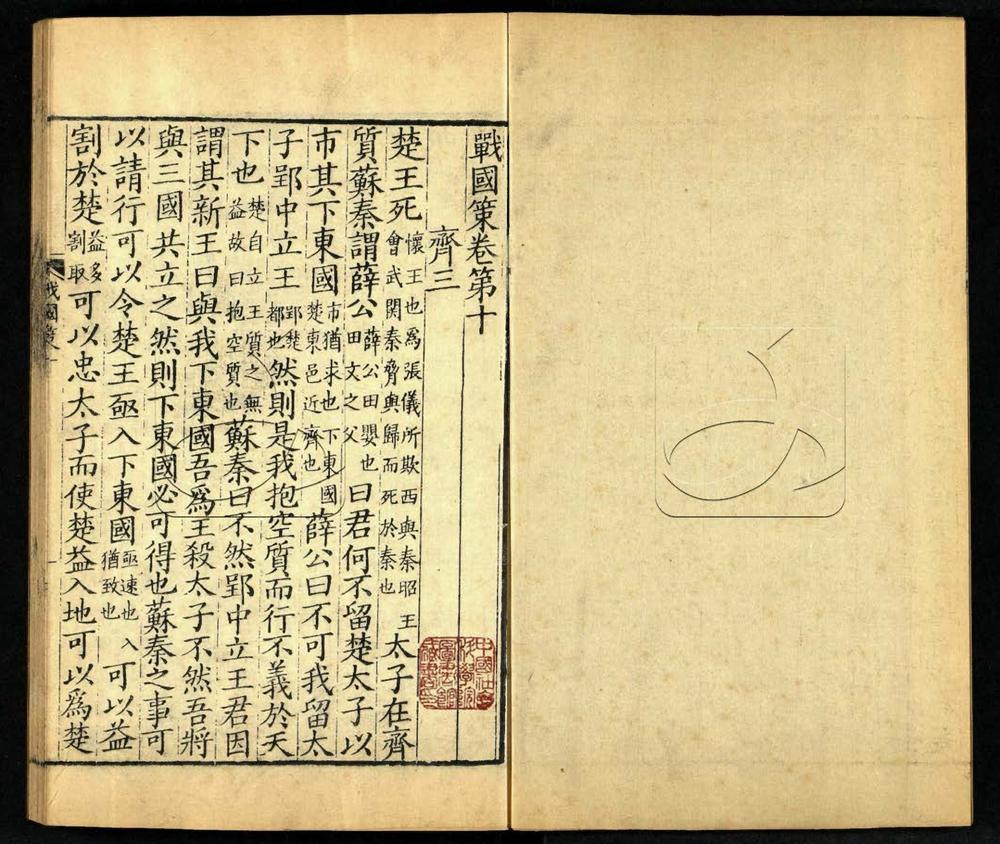 戰國策卷第十
齊三
楚王死懷王也爲張儀所欺西與秦昭王會武関秦脅與歸而死於秦也太子在齊
質蘇秦謂薛公薛公田嬰也田文之父曰君何不留楚太子以
市其下東國市猶求也下東國楚東邑近齊也薛公曰不可我留太
子郢中立王郢楚都也然則是我抱空質而行不義於天
下也楚自立王質之無益故曰抱空質也蘇秦曰不然郢中立王君因
謂其新王曰與我下東國吾爲王殺太子不然吾將
與三國共立之然則下東國必可得也蘇秦之事可
以請行可以令楚王亟入下東國亟速也入猶致也可以益
割於楚益多割取可以忠太子而使楚益入地可以爲楚
中國社會
科學院
圖書館
藏書印